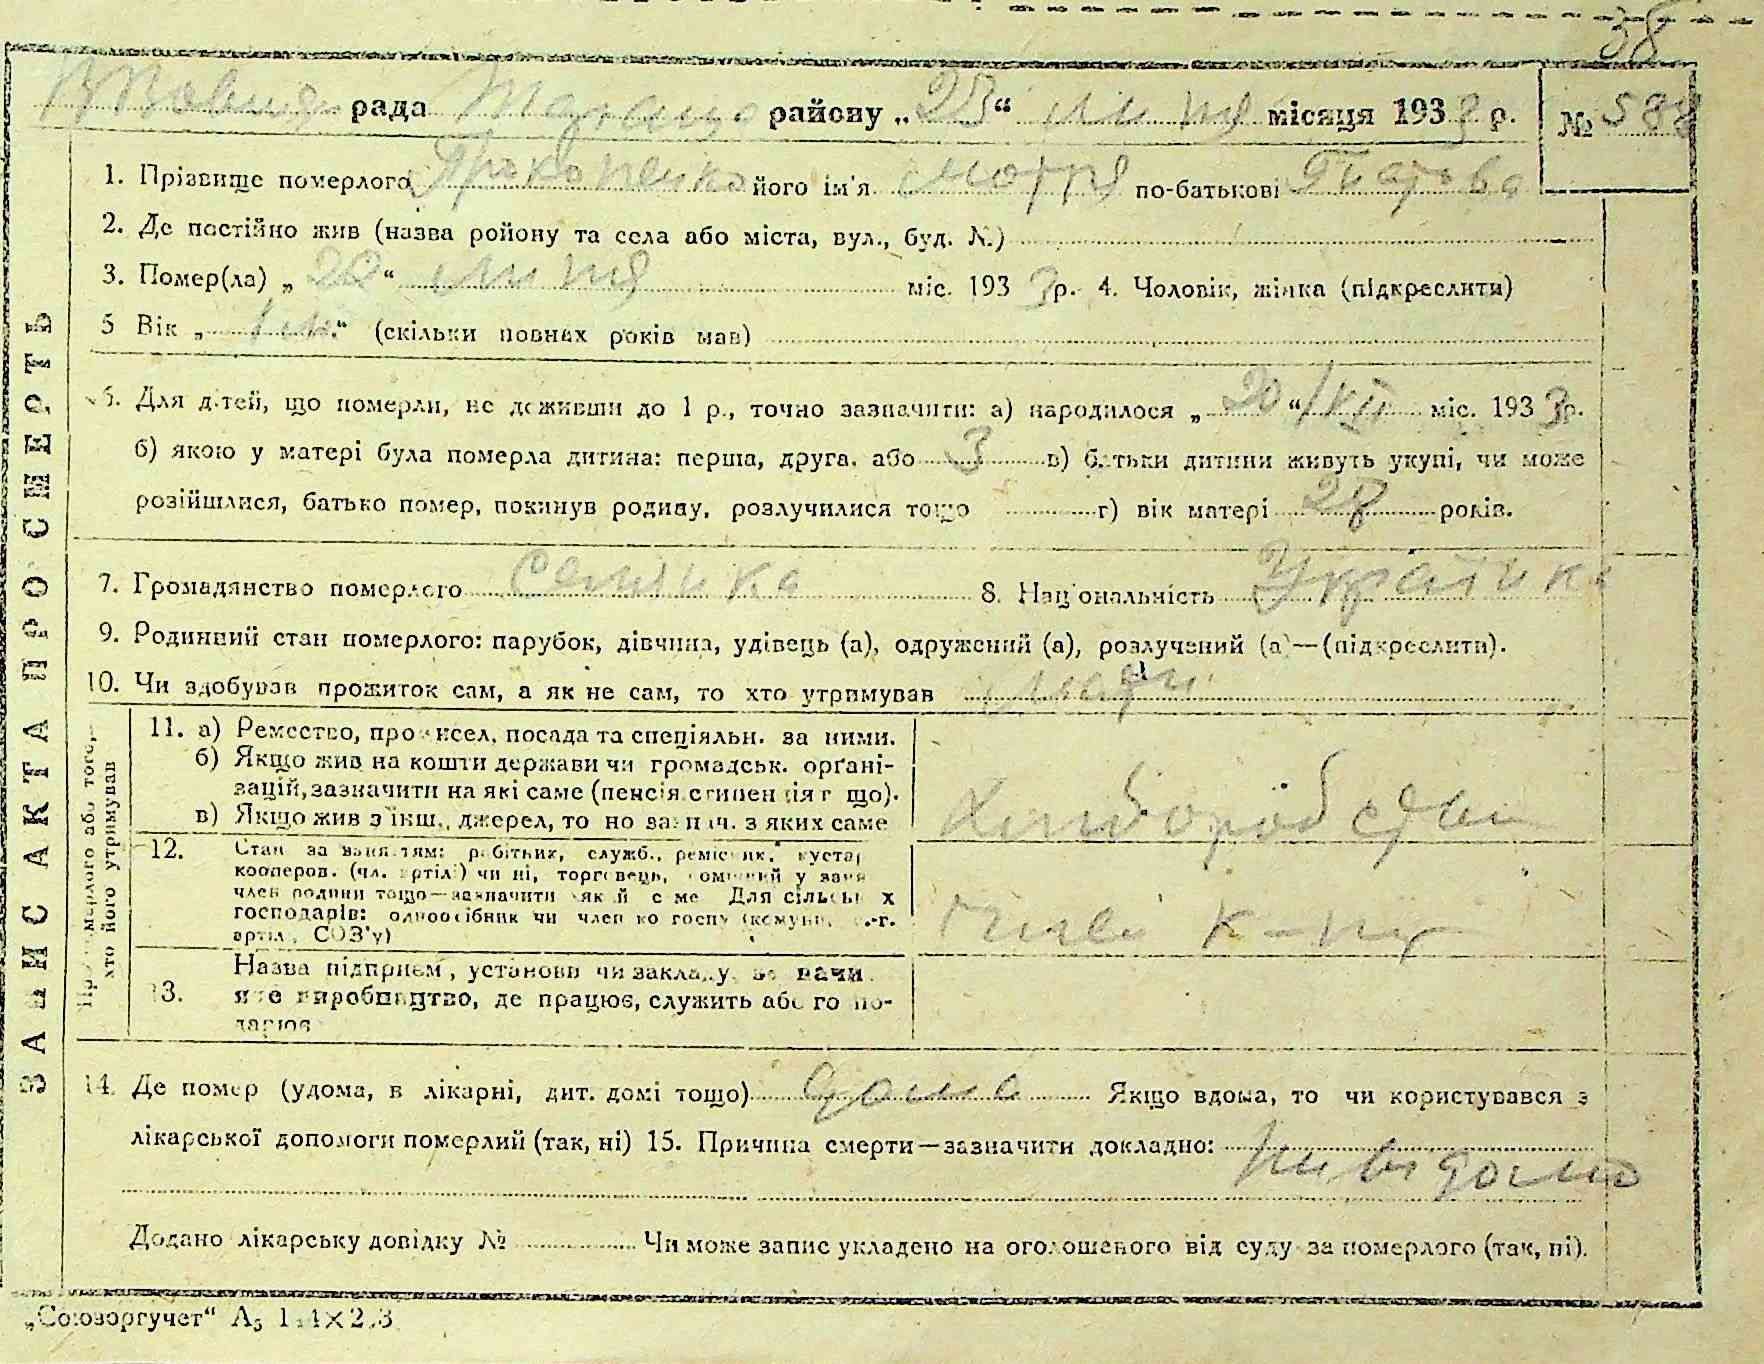 38
рада районѵ „28“ липня місяця 1933 р. № 588
1. Прізвище померлого Прокопенко його ім'я Мотря по-батькові
2. Де постійно жив (назва ройону та села або міста, вул., буд. №)
3. Помер(ла) „28“ липня міс. 1933 р. 4. Чоловік, жінка (підкреслити)
5 Вік „1 м.“ (скільки повних років мав)
6. Для дітей, що померли, не доживши до 1 р., точно зазначити: а) народилося „20“ міс. 1933 р.
б) якою у матері була померла дитина: перша, друга, або 3 в) батьки дитини живуть укупі, чи може
розійшлися, батько помер, покинув родину, розлучилися тощо г) вік матері 28 років.
7. Громадянство померлого Селянка 8. Національність Українка
9. Родинний стан померлого: парубок, дівчина, удівець (а), одружений (а), розлучений (а)—(підкреслити).
10. Чи здобував прожиток сам, а як не сам, то хто утримував мати
ЗАПИС АКТА ПРО СМЕРТЬ
Про померлого або того, хто його утримував
11. а) Ремество, професія, посада та спеціяльн. за ними.
б) Якщо жив на кошти держави чи громадськ. органі-
зацій, зазначити на які саме (пенсія стипендія т що).
в) Якщо жив з інш. джерел, то но зазнач. з яких саме
Хлібороб
12. Стан за заняттям: робітник, служб., ремісник, кустар
кооперов. (чл. артілі) чи ні, торговець,
член родини тощо—зазначити який саме Для сільськ х
господарів: одноосібник чи член
артіл, СОЗ'у)
13. Назва підприєм, установи чи закладу,
яке виробництво, де працює, служить або го по-
дарює
14. Де помер (удома, в лікарні, дит. домі тощо) дома Якщо вдома, то чи користувався з
лікарської допомоги померлий (так, ні) 15. Причина смерти—зазначити докладно:
Невідомо
Додано лікарську довідку № Чи може запис укладено на оголошеного від суду за померлого (так, ні).
„Союзоргучет“ А5